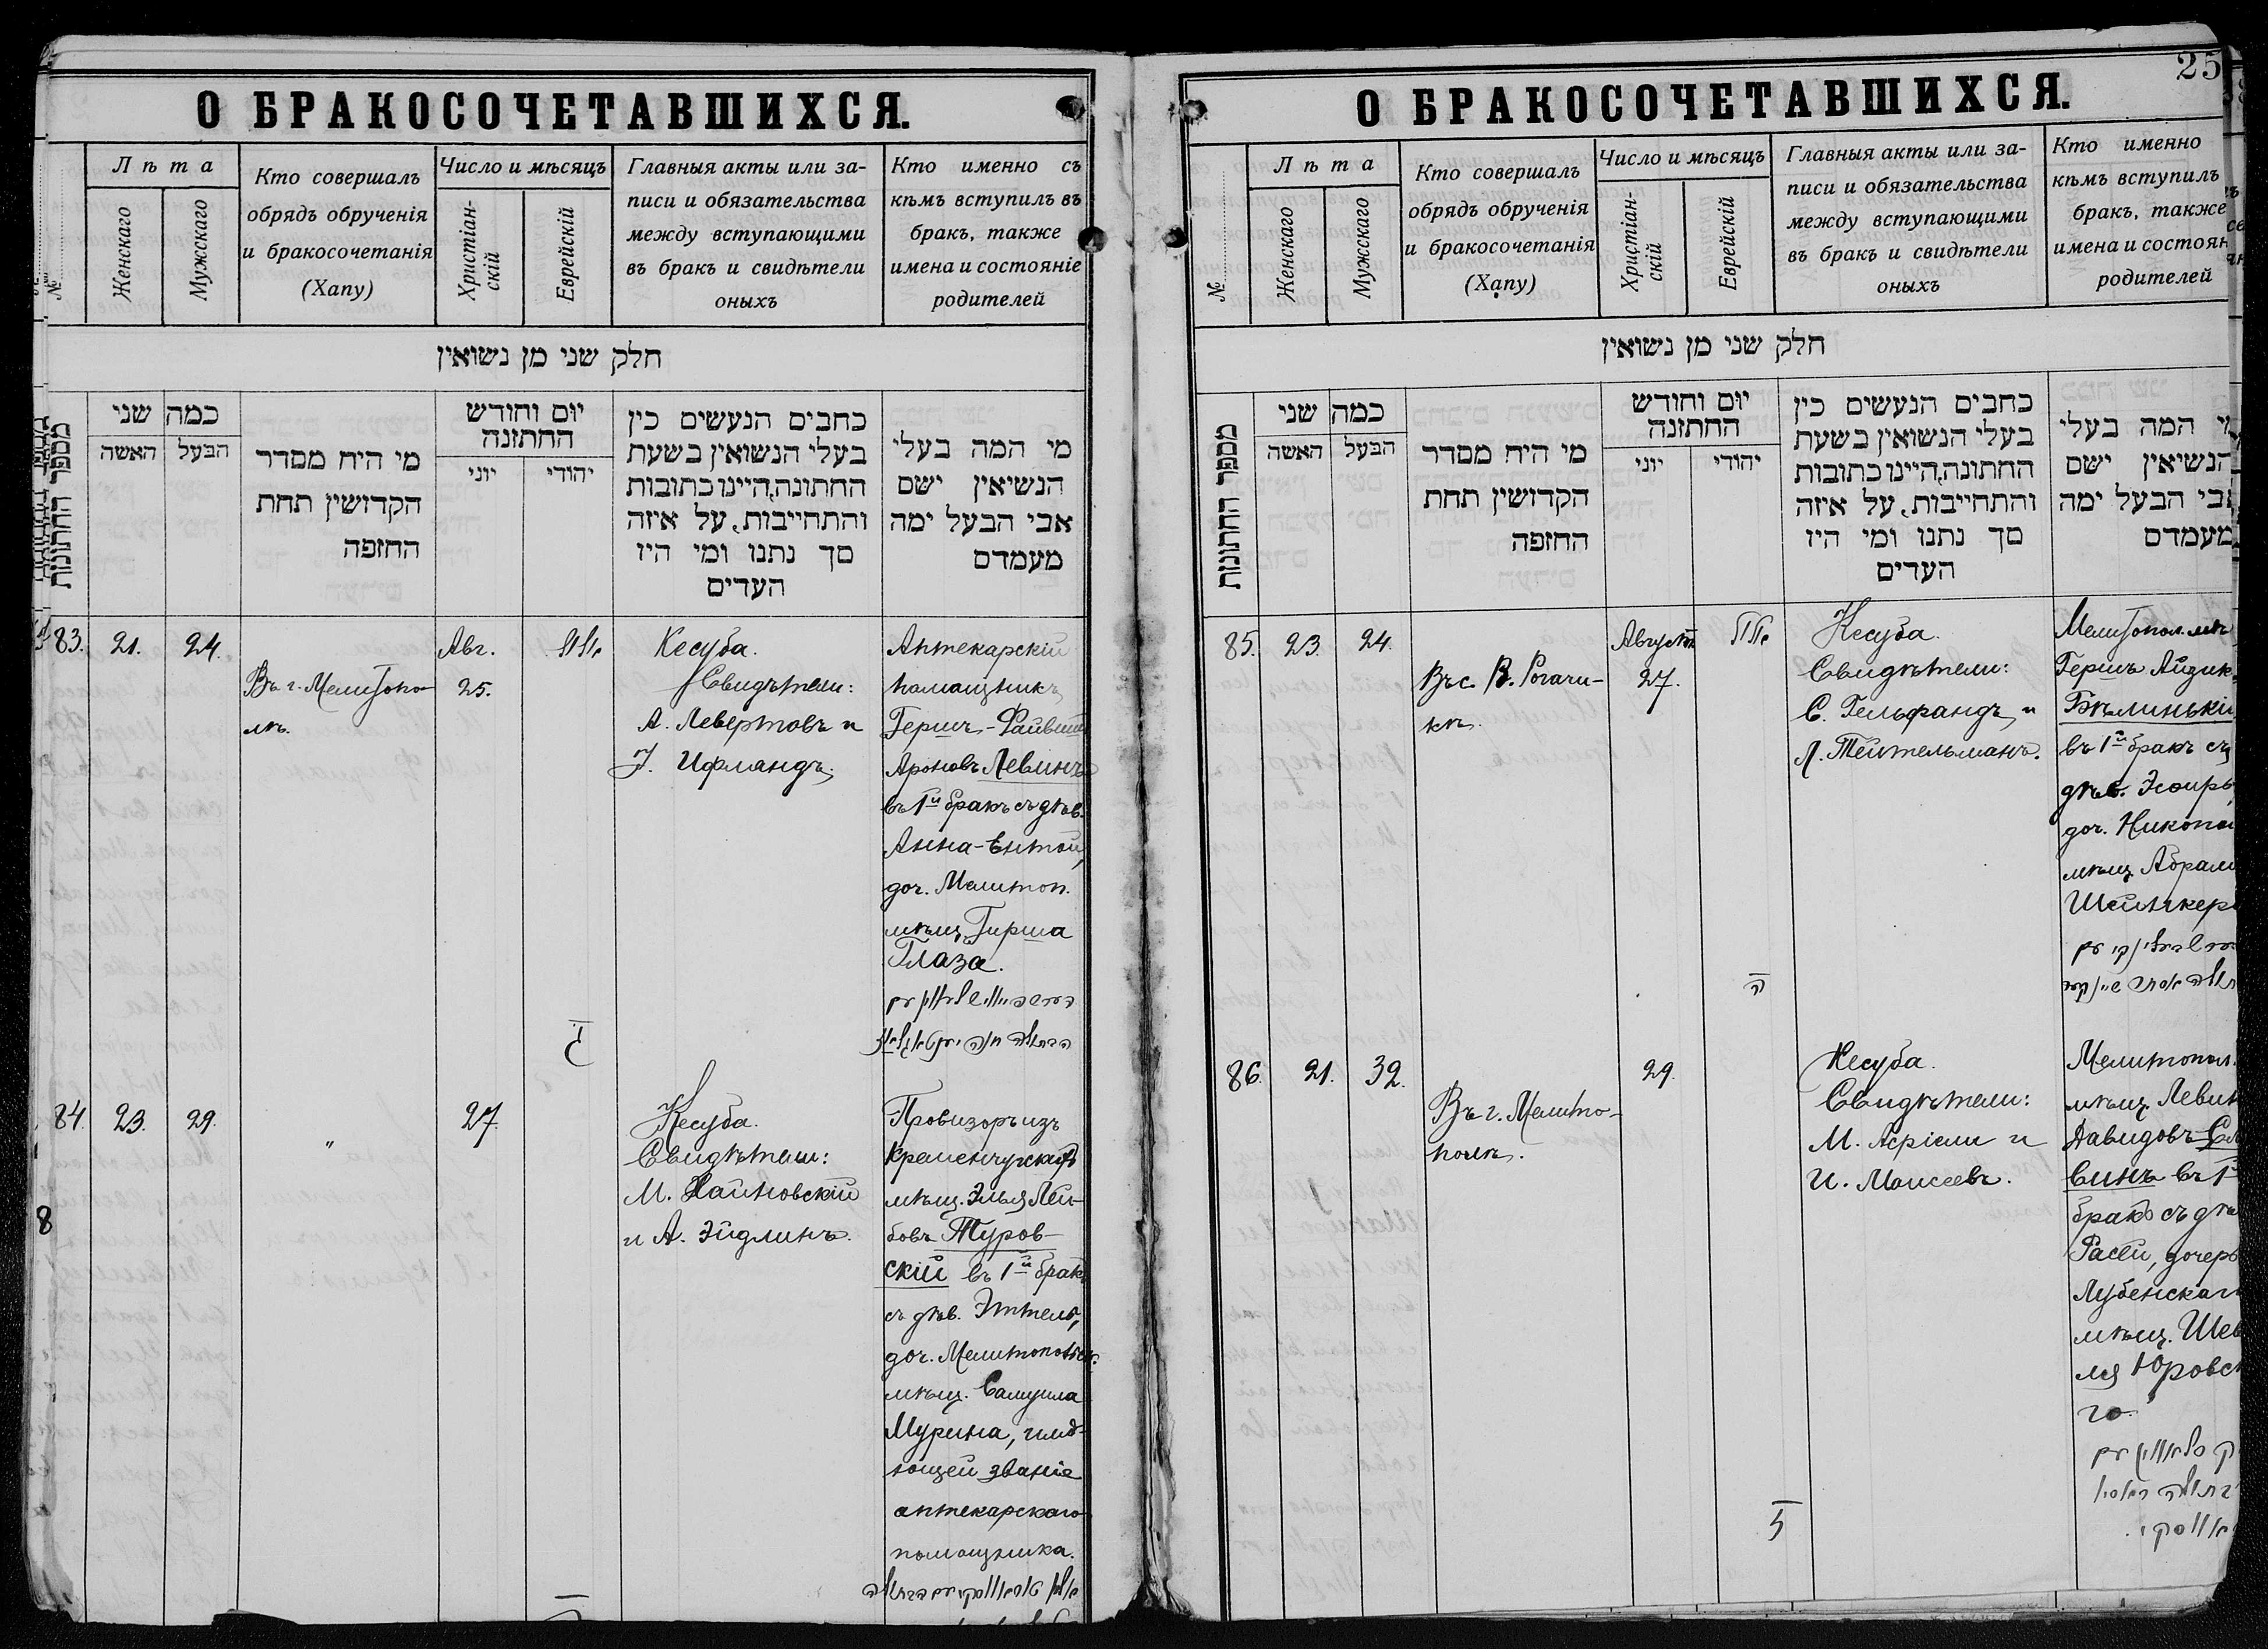 О БРАКОСОЧЕТАВШИХСЯ.
№
Лѣта
Женскаго
Мужскаго
Кто совершалъ
обрядъ обрученія
и бракосочетанія
(Хапу)
Число и мѣсяцъ
Христіан-
скій
Еврейскій
Главныя акты или за-
писи и обязательства
между вступающими
въ бракъ и свидѣтели
оныхъ
Кто именно съ
кѣмъ вступилъ въ
бракъ, также
имена и состояніе
родителей
חלק שני מן נשואין
מספר החתונות
כמה שני
האשה
הבעל
מי היח מסדר
הקדושין תחת
החזפה
יום וחודש
החתזנה
יוני
יהודי
כחבים הנעשים כין
בעלי הנשואין בשעת
החתונה,היינו כתובות
והתחייבות, על איזה
סך נתנו ומי היז
העדים
מי המה בעלי
הנשיאין ישם
אבי הבעל ימה
מעמדם
83.
21.
24.
Въ г. Мелитопо-
лѣ.
Авг.
25.
Кесуба.
Свидѣтели:
А. Левертовъ и
І. Ифландъ.
Аптекарскій
помощникъ
Гершъ-Файвиш
Ароновъ Левинъ
въ 1й бракъ съ дѣв.
Анна-Ентой,
доч. Мелитоп.
мѣщ. Гирша
Глаза.
ג
84.
23.
29.
"
27.
Кесуба.
Свидѣтели:
М. Хайновскій
и А. Эйдлинъ.
Провизоръ изъ
Кременчугскихъ
мѣщ. Эльяъ Лей-
бовъ Туров-
скій въ 1й бракъ
съ дѣв. Эттель,
доч. Мелитопольск.
мѣщ. Самуила
Мурина, имѣ-
ющей званіе
аптекарскаго
помощника.
8
О БРАКОСОЧЕТАВШИХСЯ.
25
№
Лѣта
Женскаго
Мужскаго
Кто совершалъ
обрядъ обрученія
и бракосочетанія
(Хапу)
Число и мѣсяцъ
Христіан-
скій
Еврейскій
Главныя акты или за-
писи и обязательства
между вступающими
въ бракъ и свидѣтели
оныхъ
Кто именно
кѣмъ вступилъ
бракъ, также
имена и состоян
родителей
חלק שני מן נשואין
מספר החתונות
כמה שני
האשה
הבעל
מי היח מסדר
הקדושין תחת
החזפה
יום וחודש
החתזנה
יוני
יהודי
כחבים הנעשים כין
בעלי הנשואין בשעת
החתונה,היינו כתובות
והתחייבות, על איזה
סך נתנו ומי היז
העדים
המה בעלי
הנשיאין ישם
אבי הבעל ימה
מעמדם
85.
23.
24.
Въ с. В. Рогачи-
кѣ.
Августа
27.
Кесуба.
Свидѣтели:
С. Гельфандъ и
Л. Тейтельманъ.
Мелитопол. мѣщ
Гершъ Айзик
Бѣлинькі
въ 1й бракъ съ
дѣв. Эсфирь
доч. Никопо
мѣщ Абрам
Шейнкер
ה
86.
21.
32.
Въ г. Мелито-
полѣ.
29.
Кесуба.
Свидѣтели:
М. Асріели и
И. Моисеевъ.
Мелитопол.
мѣщ. Левик
Давидовъ Сл
винъ въ 1й
бракъ съ дѣв
Расей, дочерь
Лубенскаго
мѣщ. Шев
ля Юровск
го.
ז